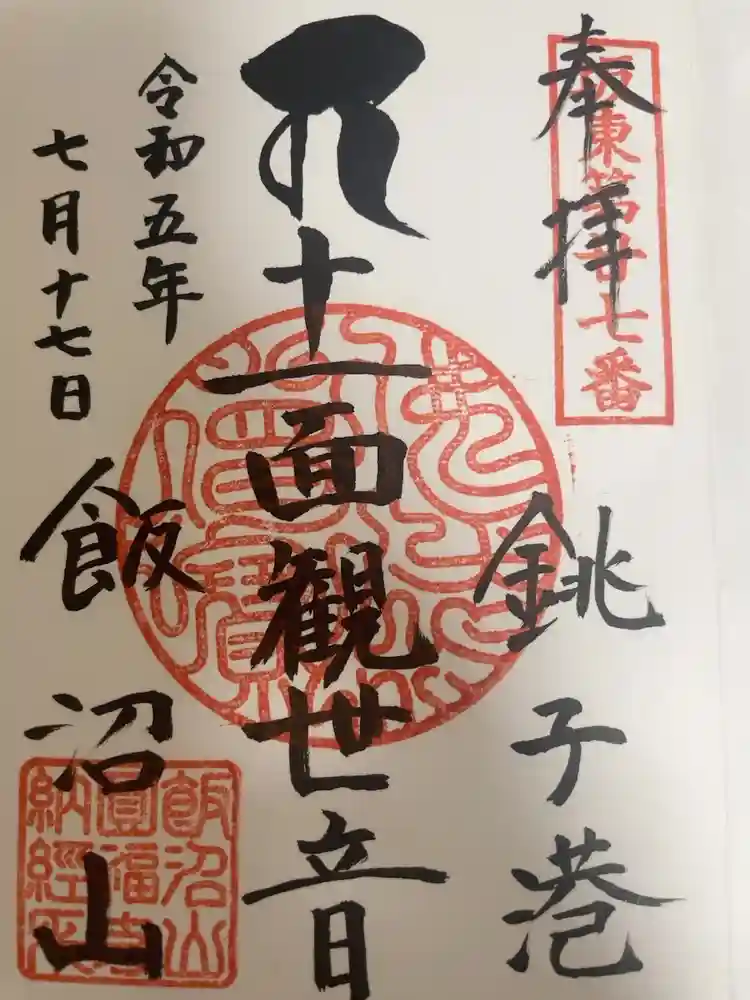 奉拝
坂東第廿七番
銚子港
十一面觀世音
令和五年
七月十七日
飯沼山
飯沼山
圓福寺
納經之印